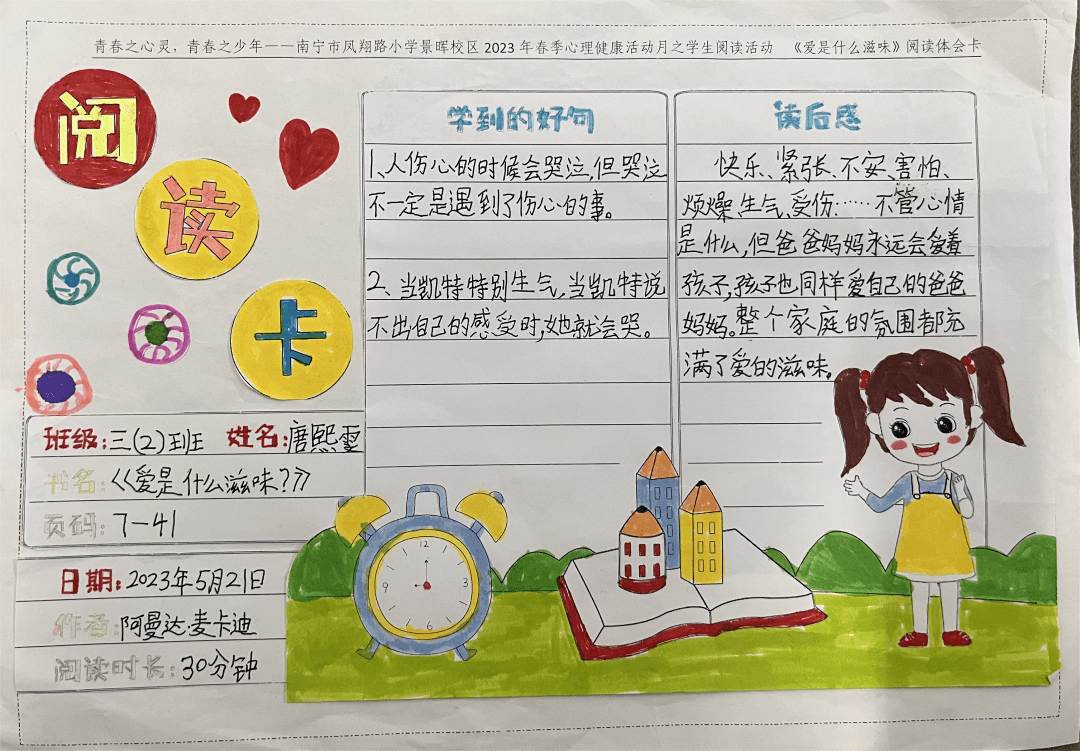 青春之心灵，青春之少年——南宁市凤翔路小学景晖校区 2023 年春季心理健康活动月之学生阅读活动 《爱是什么滋味》阅读体会卡
阅
读
卡
班级:三(2)班 姓名:唐熙雯
书名:《爱是什么滋味?》
页码:7—41
日期:2023年5月21日
作者:阿曼达·麦卡迪
阅读时长:30分钟
学到的好句
1、人伤心的时候会哭泣,但哭泣
不一定是遇到了伤心的事。
2、当凯特特别生气,当凯特说
不出自己的感受时,她就会哭。
读后感
快乐、紧张、不安、害怕、
烦燥、生气、受伤……不管心情
是什么,但爸爸妈妈永远会爱着
孩子,孩子也同样爱自己的爸爸
妈妈。整个家庭的氛围都充
满了爱的滋味。
12
3
6
9